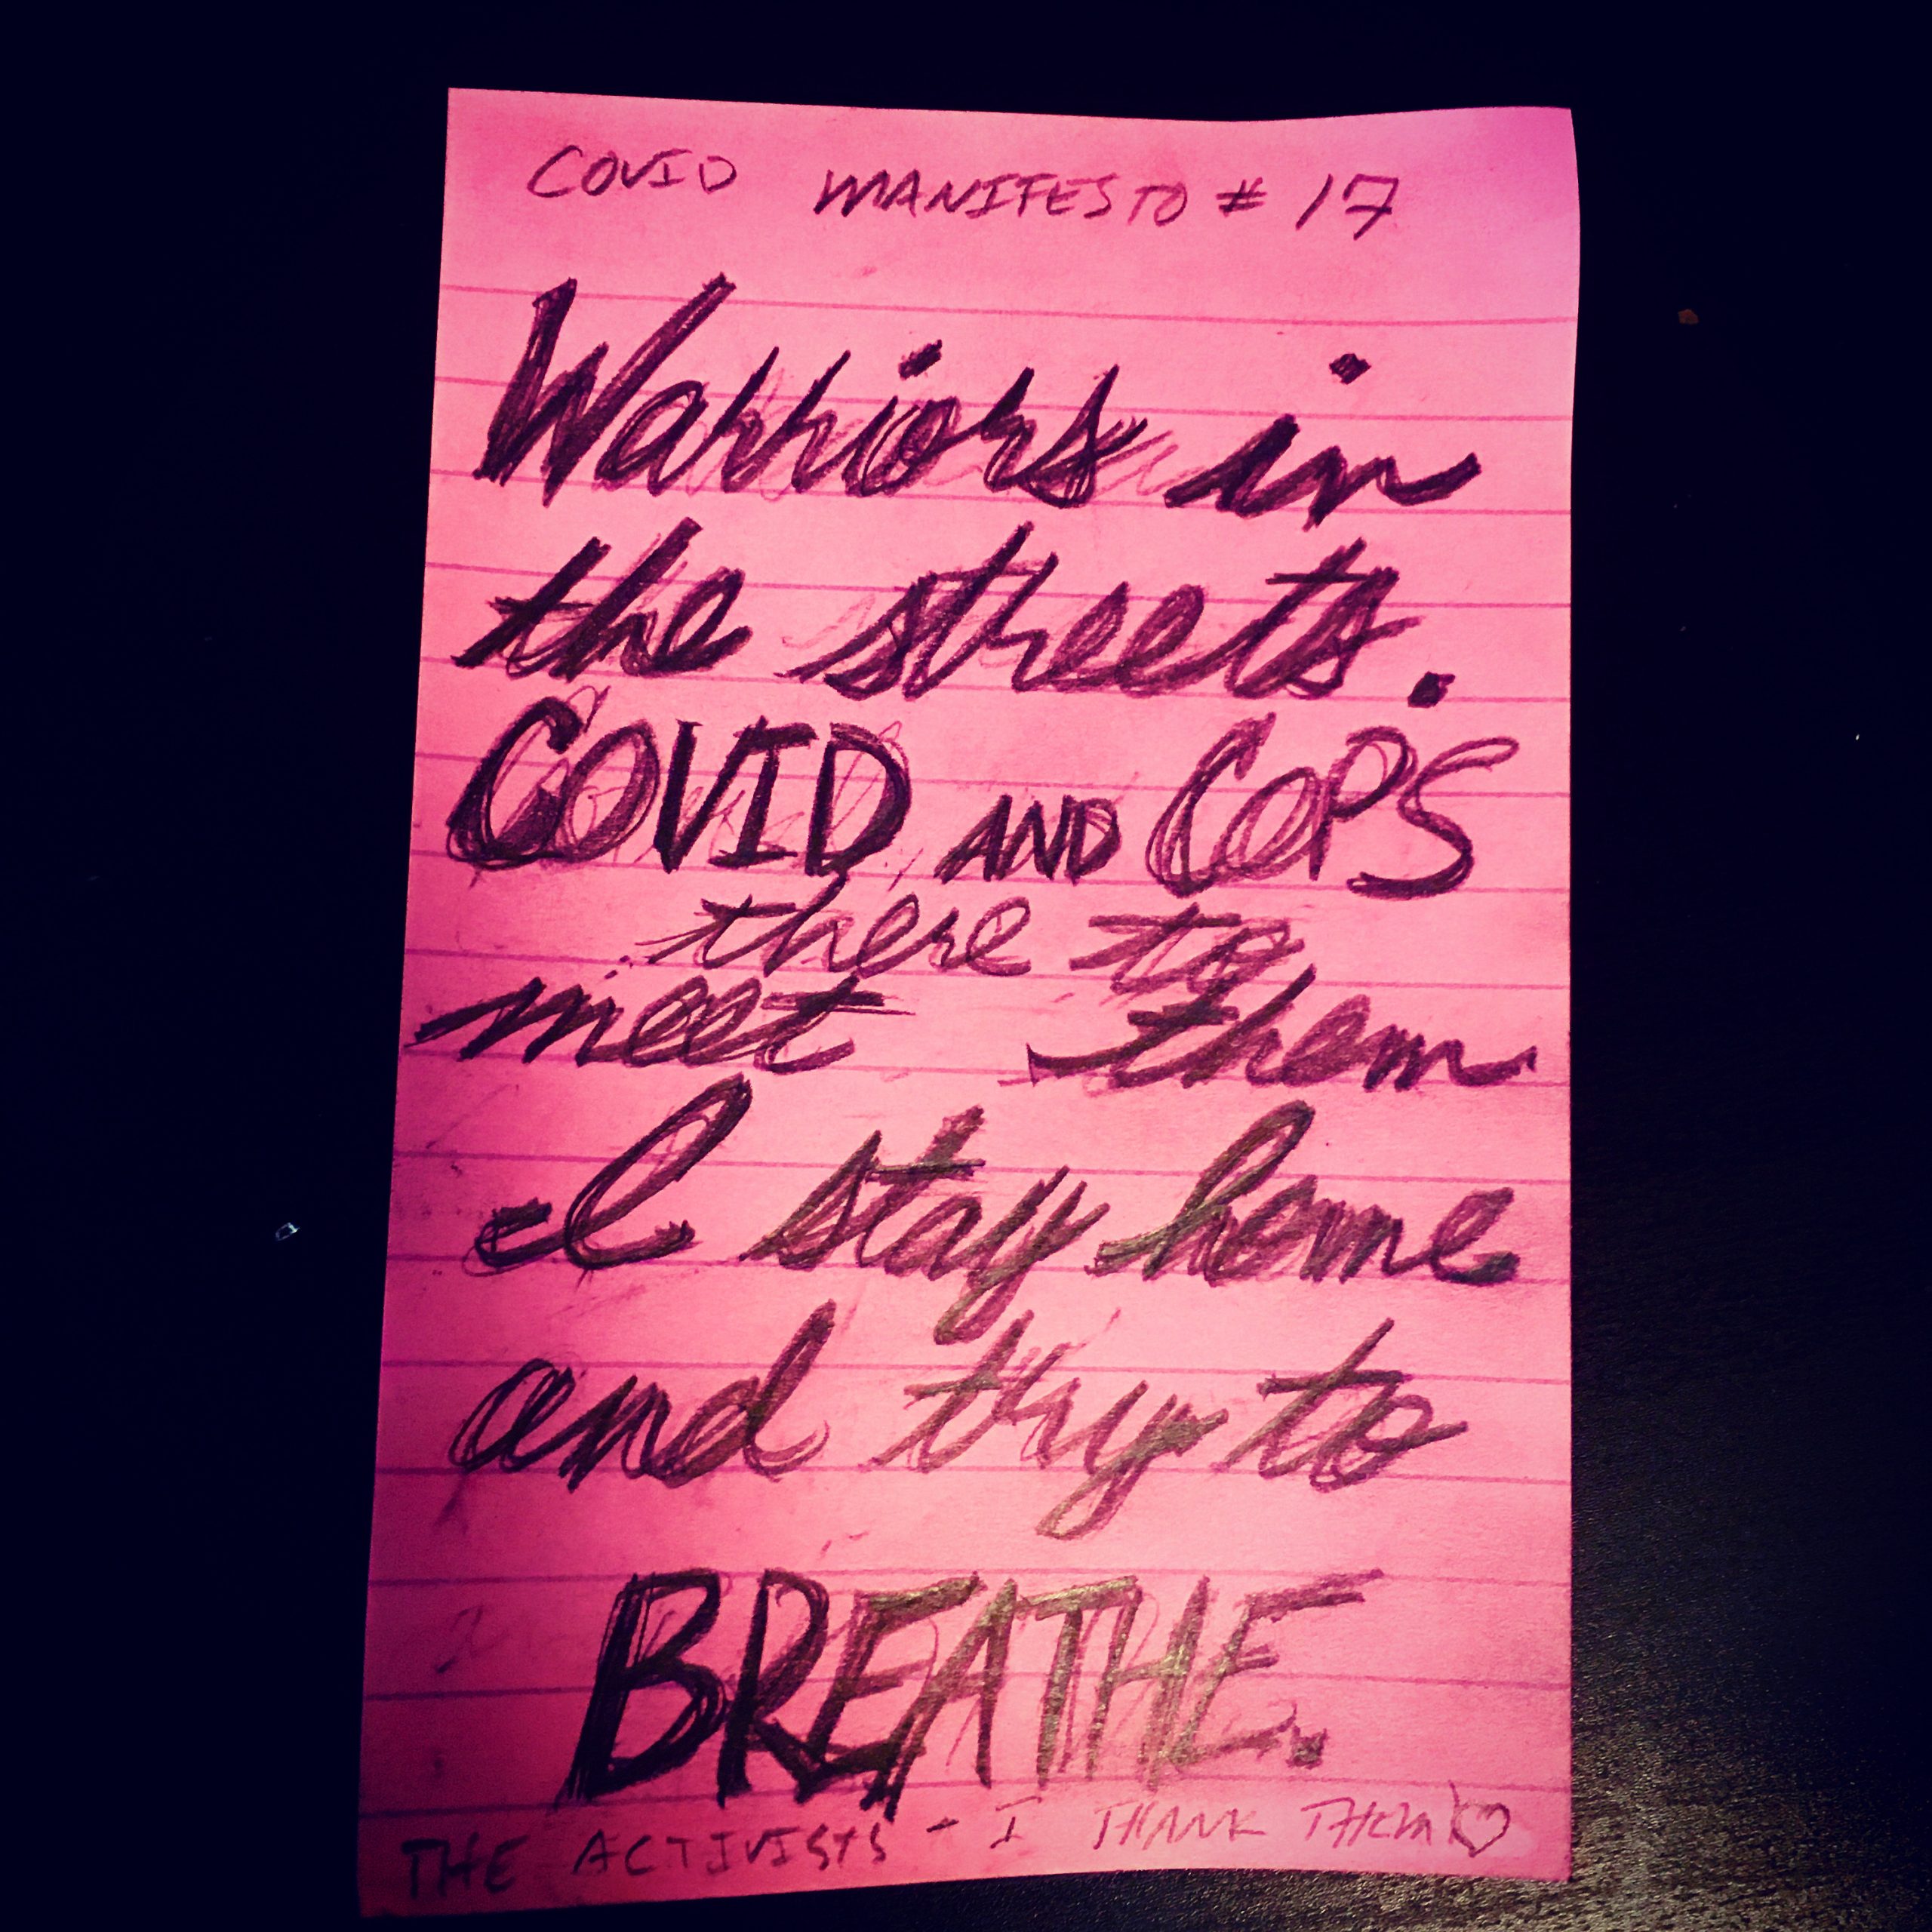 COVID MANIFESTO # 17
Warriors in
the streets.
COVID AND COPS
there to
meet them
I stay home
and try to
BREATHE.
THE ACTIVISTS - I THANK THEM